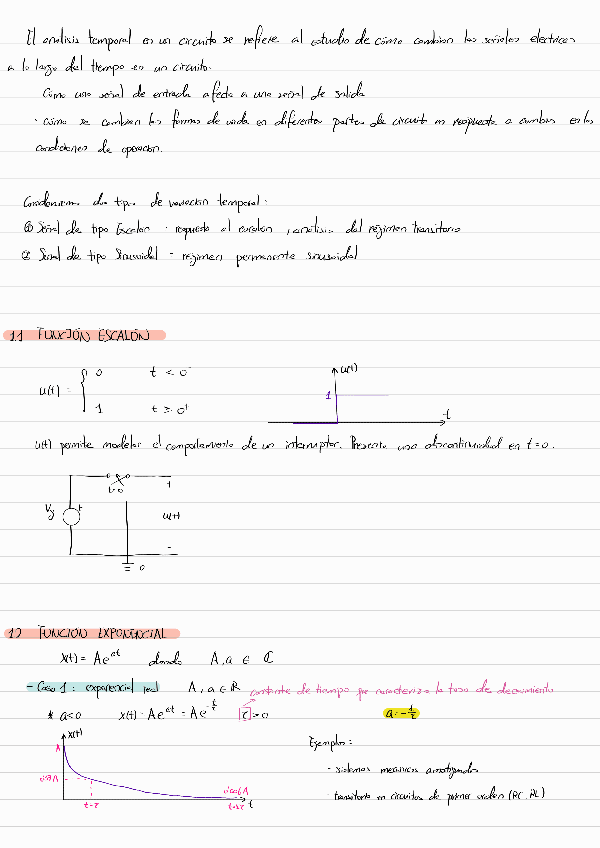 El análisis temporal en un circuito se refiere al estudio de cómo cambian las señales eléctricas
a lo largo del tiempo en un circuito.
Cómo una señal de entrada afecta a una señal de salida
· cómo se cambian las formas de onda en diferentes partes de circuito en respuesta a cambios en las
condiciones de operación.
Consideramos dos tipos de variación temporal:
① Señal de tipo Escalón - respuesta al escalón, análisis del régimen transitorio
② Señal de tipo Sinusoidal - régimen permanente sinusoidal
1.1 FUNCIÓN ESCALÓN
u(t) = { 0 t < 0⁻
1 t ≥ 0⁺
u(t)
1
t
u(t) permite modelar el comportamiento de un interruptor. Presenta una discontinuidad en t=0.
t=0
+
Vg
u(t)
-
0
1.2 FUNCIÓN EXPONENCIAL
x(t) = Ae^at donde A, a ∈ ℂ
- Caso 1: exponencial real A, a ∈ ℝ constante de tiempo que caracteriza la tasa de decaimiento
* a<0 x(t) = Ae^at = Ae^-t/τ τ > 0 a = -1/τ
x(t)
A
t=τ
t
Ejemplos:
- sistemas mecánicos amortiguados
- transitorio en circuitos de primer orden (RC, RL)